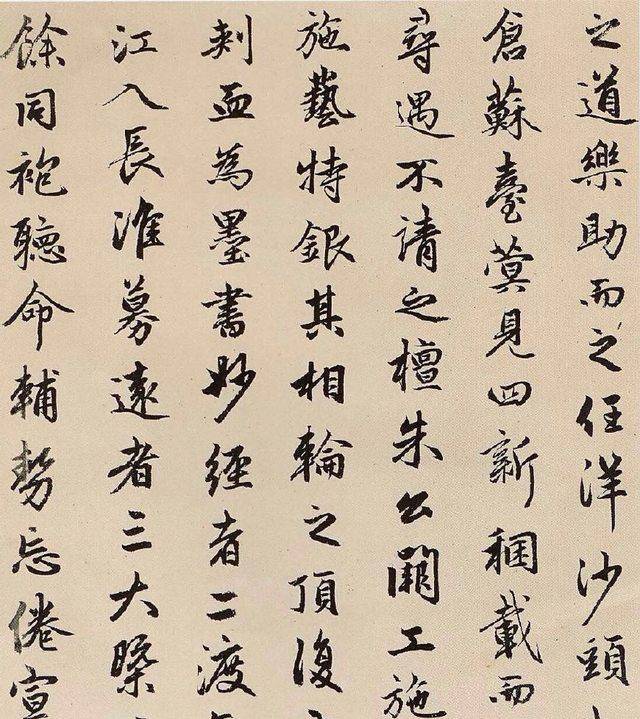 之道樂助而之任洋沙頭
倉蘇臺蓂見四新稛載而
尋遇不請之檀朱公開工施
施藝特銀其相輪之頂復
刺血為墨書妙經者二渡
江入長淮募遠者三大槩
餘同袍聽命輔勢忘倦宣